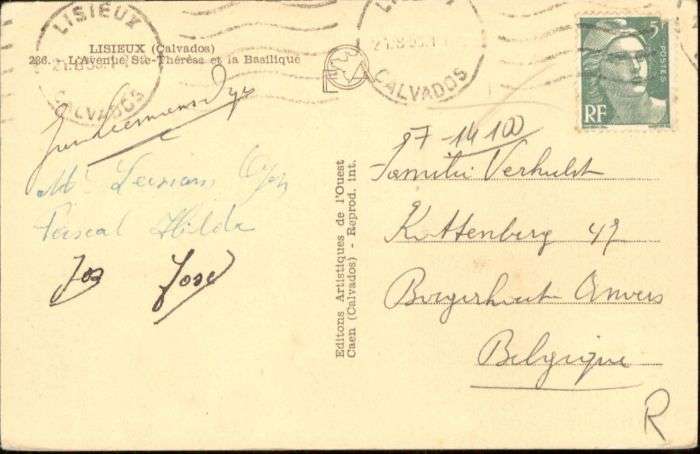 LISIEUX
CALVADOS
LISIEUX
CALVADOS
LISIEUX (Calvados)
236. - L'Avenue Ste-Thérèse et la Basilique
5F
POSTES
RF
Pascal Hilda
Jos José
Editons Artistiques de l'Ouest
Caen (Calvados) - Reprod. int.
97-14100
Familie Verhulst
Kattenberg 49
Borgerhout Anvers
Belgique
R